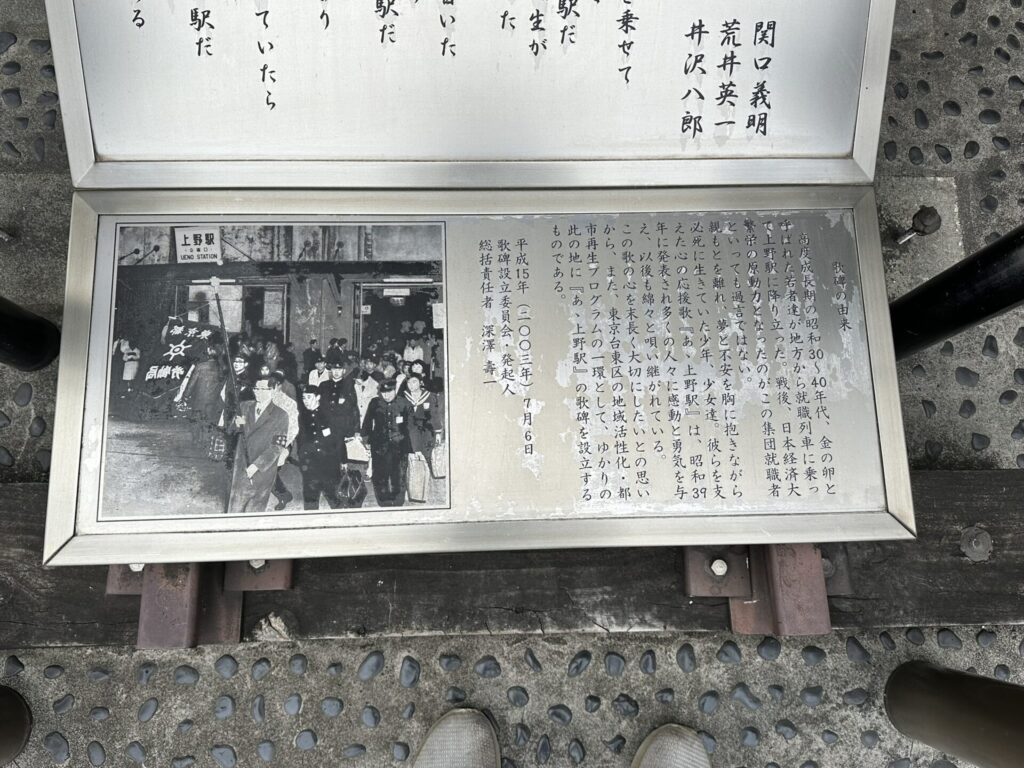 関口義明
荒井英一
井沢八郎
を乗せて
駅だ
生が
た
いた
駅だ
り
ていたら
駅だ
る
歌碑の由来
高度成長期の昭和30〜40年代、金の卵と
呼ばれた若者達が地方から就職列車に乗っ
て上野駅に降り立った。戦後、日本経済大
繁栄の原動力となったのがこの集団就職者
といっても過言ではない。
親もとを離れ、夢と不安を胸に抱きながら
必死に生きていた少年、少女達。彼らを支
えた心の応援歌『あゝ上野駅』は、昭和39
年に発表され多くの人々に感動と勇気を与
え、以後も綿々と唄い継がれている。
この歌の心を末長く大切にしたいとの思い
から、また、東京台東区の地域活性化・都
市再生プログラムの一環として、ゆかりの
此の地に『あゝ上野駅』の歌碑を設立する
ものである。
平成15年（二〇〇三年）7月6日
歌碑設立委員会・発起人
総括責任者 深澤 壽一
上野駅
UENO STATION